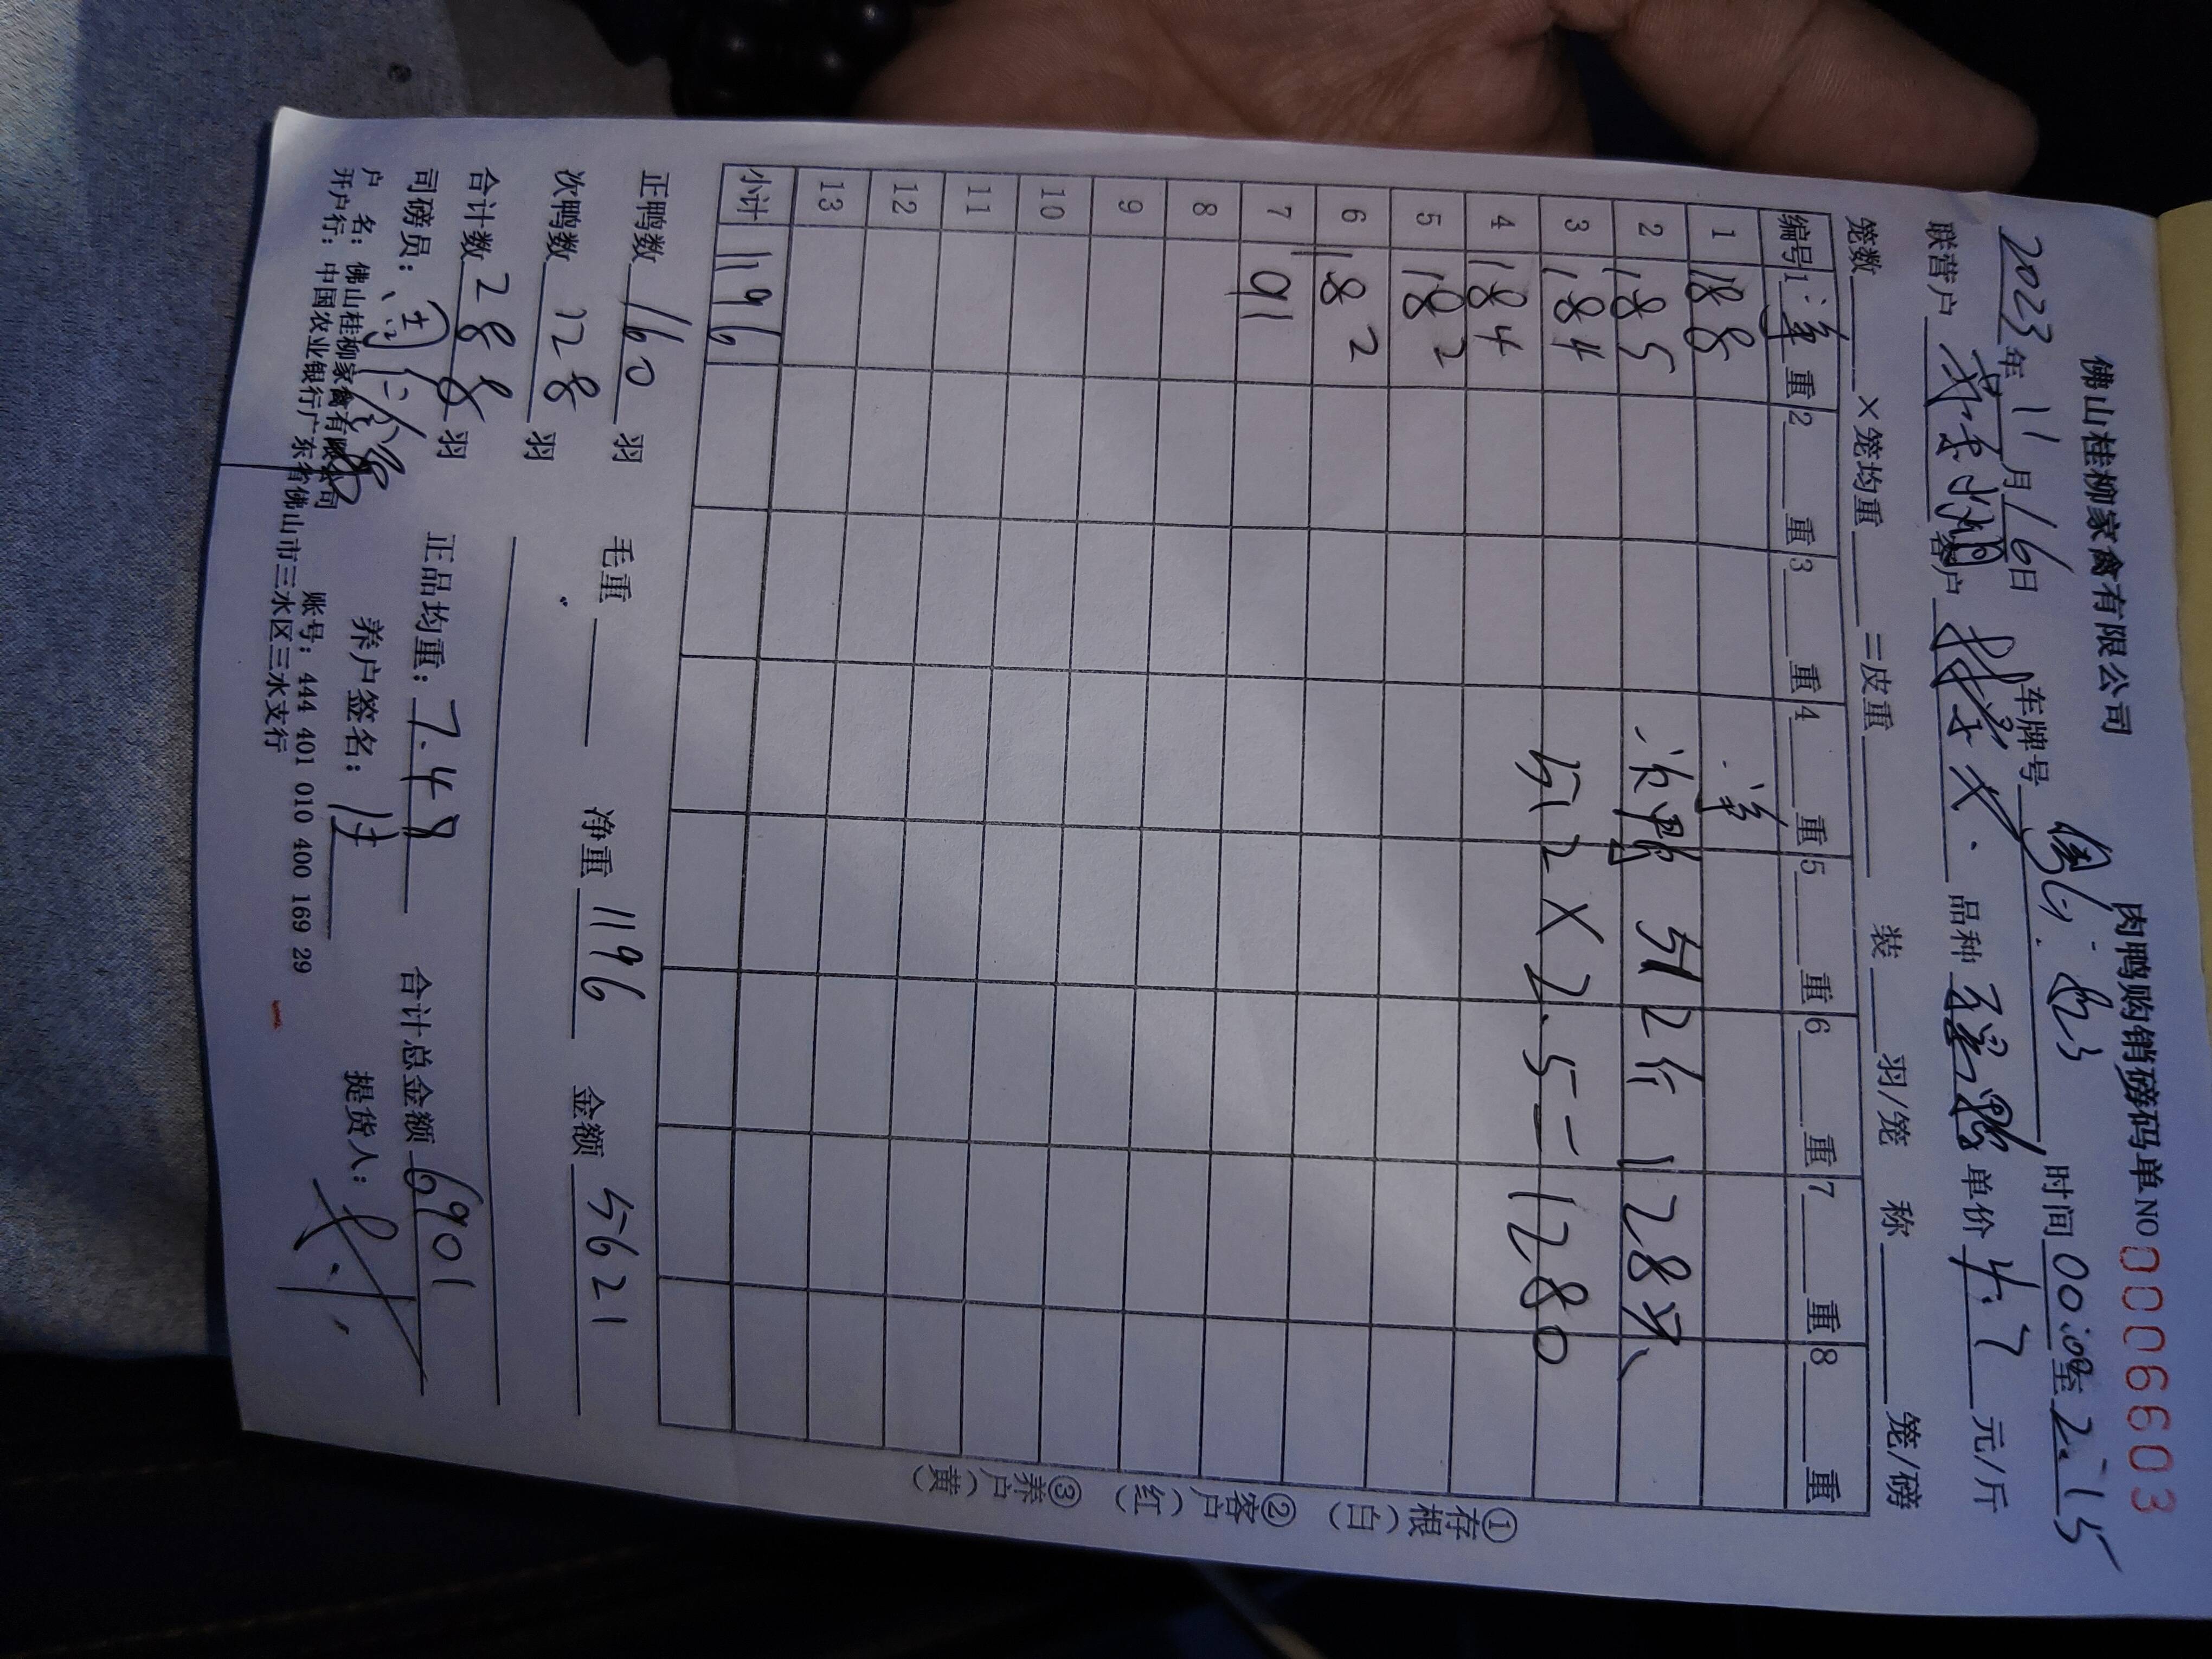 佛山桂柳家禽有限公司
肉鸭购销磅码单NO 0006603
2023年11月16日 车牌号 时间00:10至2:15
联营户 客户 品种 单价4.7元/斤
笼数 ×笼均重 =皮重 装 羽/笼 称 笼/磅
编号 1净重 2 重 3 重 4 重 5 重 6 重 7 重 8 重
1 188 净
2 185 次鸭 512斤 128只
3 184 512×2.5=1280
4 184
5 182
6 182
7 91
8
9
10
11
12
13
小计 1196
正鸭数160羽 毛重 净重1196 金额5621
次鸭数128羽
合计数288羽 正品均重:7.48 合计总金额6901
司磅员: 养户签名: 提货人:
户 名:佛山桂柳家禽有限公司 账号:444 401 010 400 169 29
开户行:中国农业银行广东省佛山市三水区三水支行
①存根(白) ②客户(红) ③养户(黄)